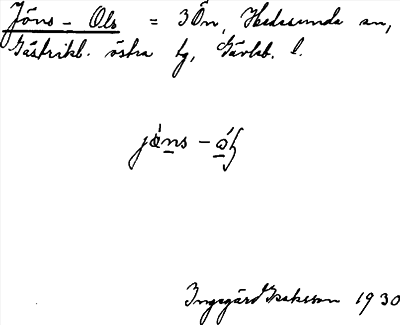 Jöns - Ols = 3 Ön, Hedesunda sn,
Gästrikl. östra tg, Gävleb. l.
jö́ns - ó
Ingegärd Isaksson 1930